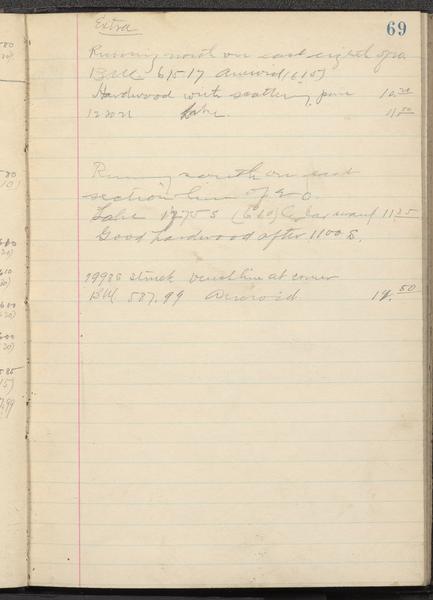 69
Extra
Running north on east eighth of 20
B.M. 615.17 Aneroid (615)
Hardwood with scattering pine 10.20
Lake. 11.00
Running south on east
section line of 20.
Lake 1275 S (610) Cedar swamp 11.25
Good hardwood after 1100 S.
struck bench line at corner
B.M. 587.99 Aneroid 12.50